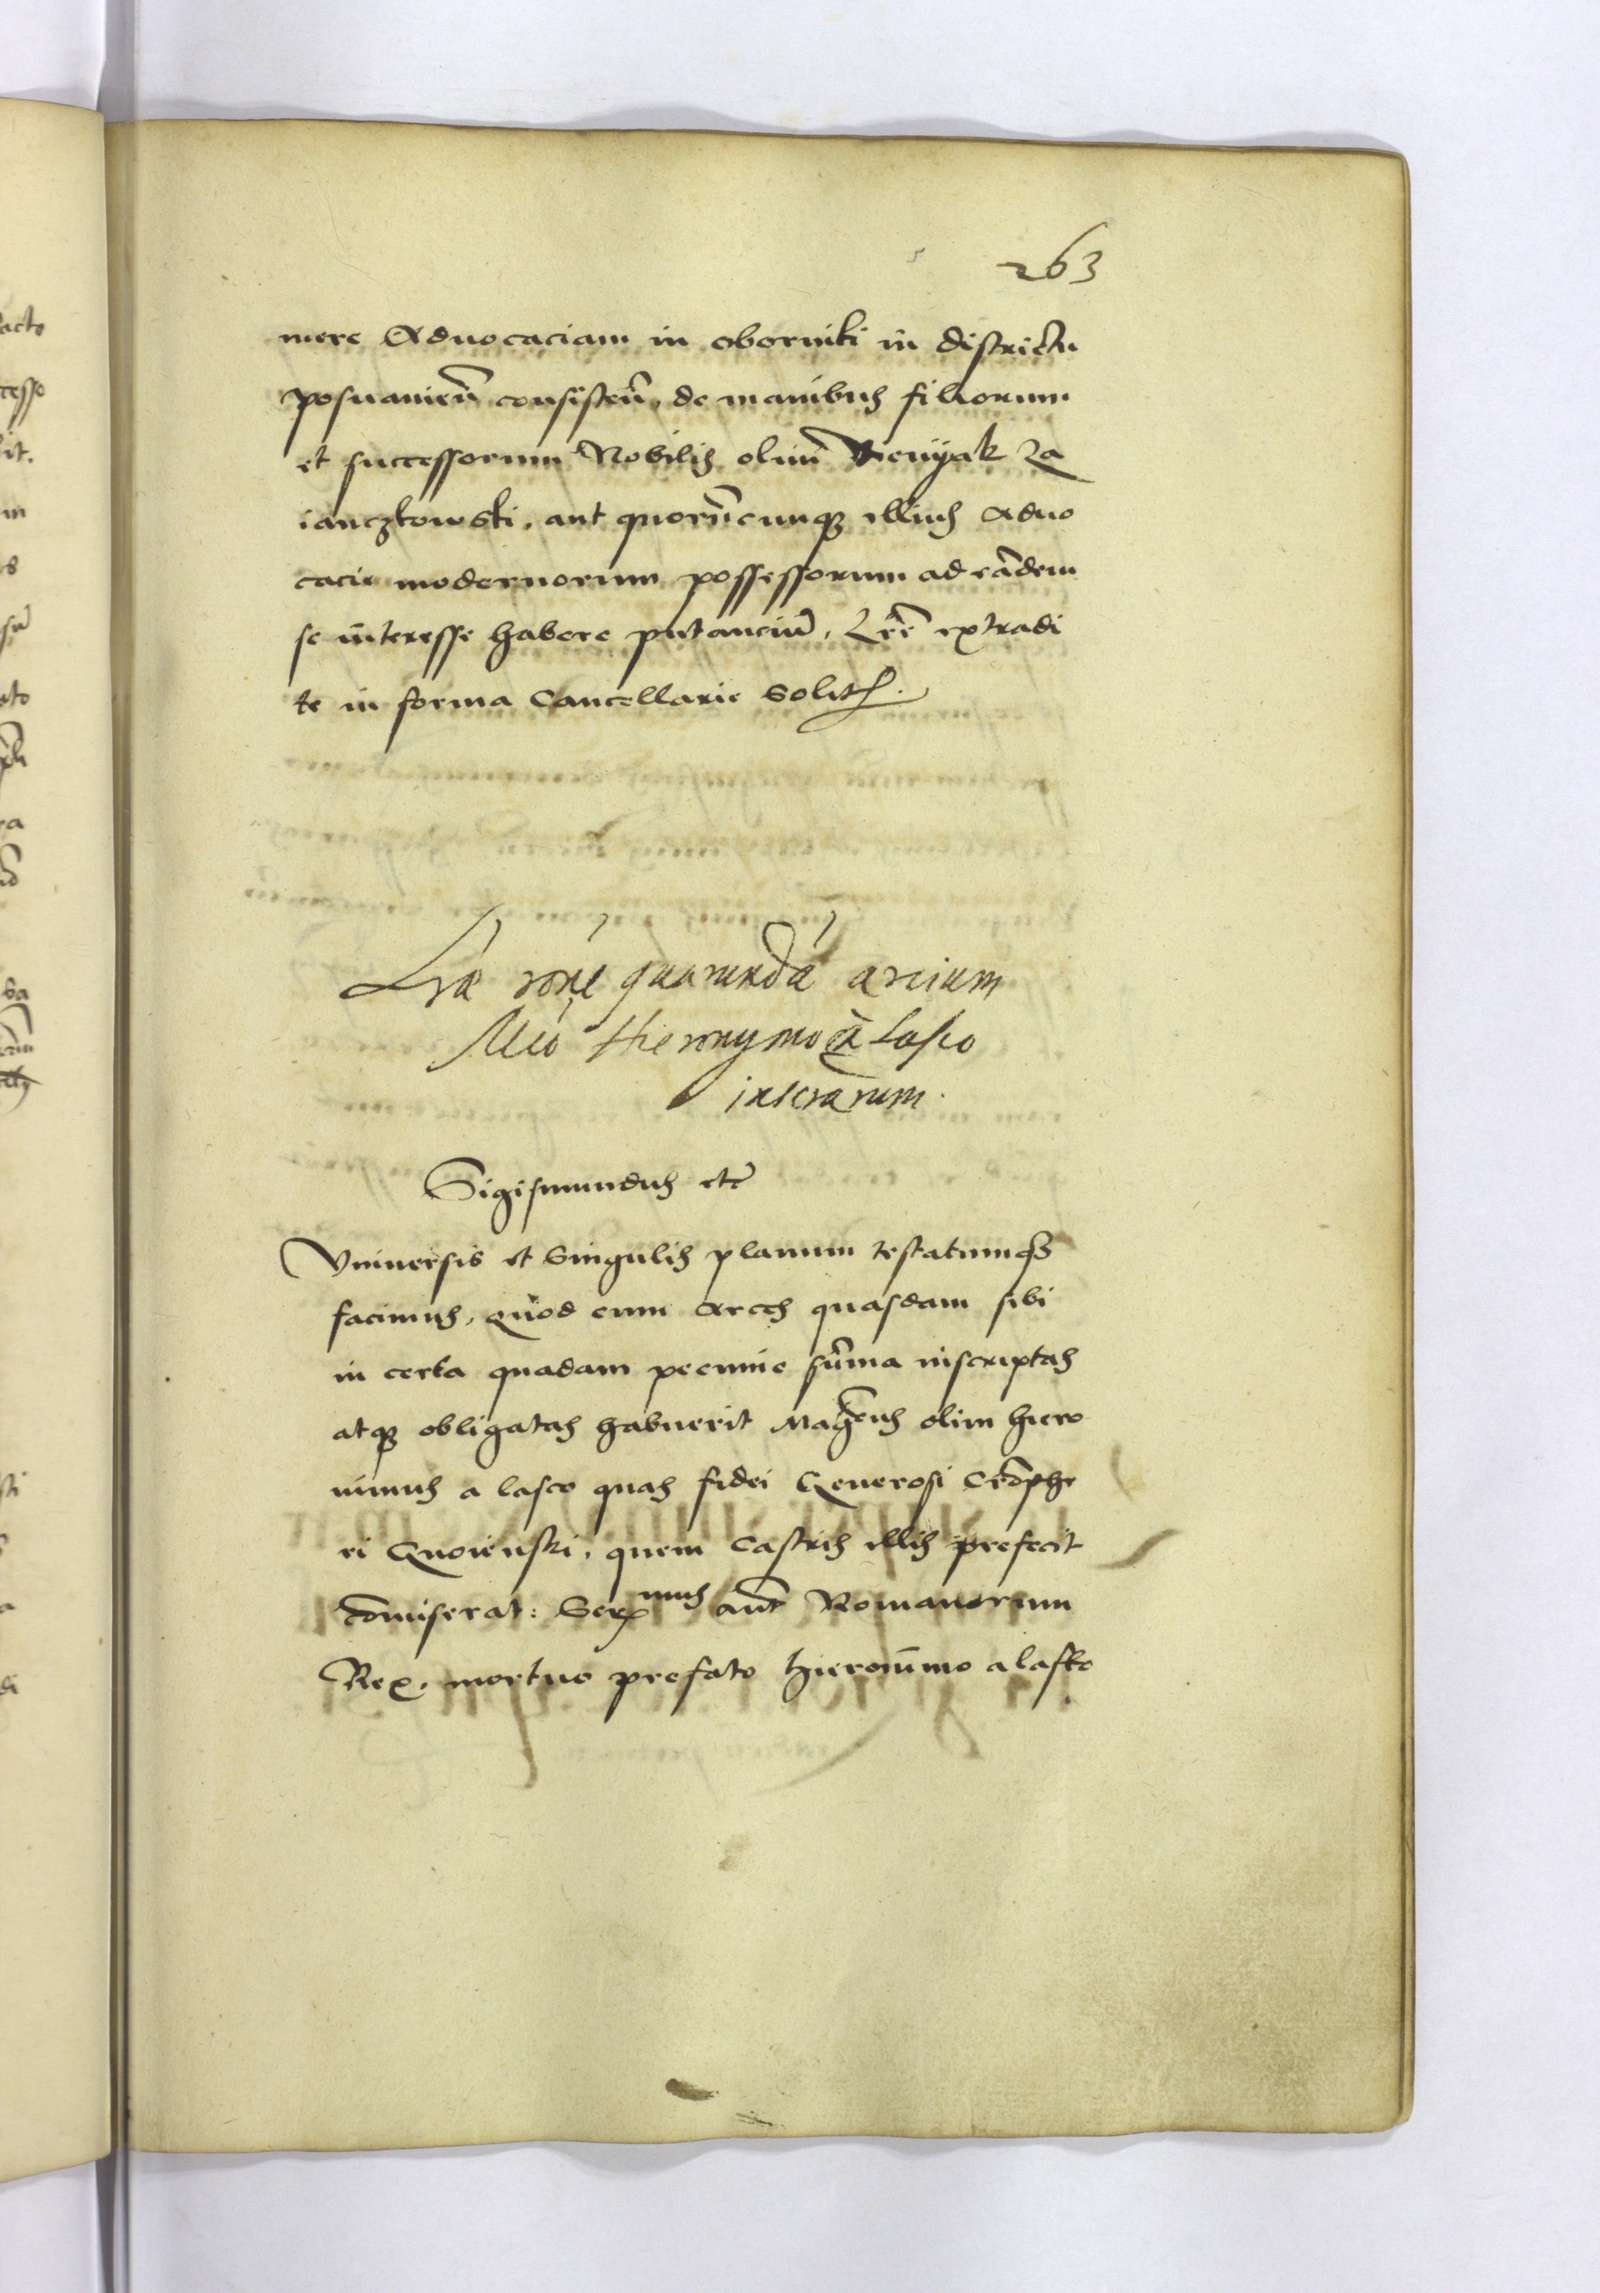 263
mere Aduocaciam in oborniki in districtu
posnanien̄ consisten̄, de manibus filiorum
et successorum Nobilis olim̄ Za
ianczkowski, aut quorūcunq; illius aduo
cacie modernorum possessorum ad eādem
se interesse habere putanciu̅, Lr̄e extradi
te in forma Cancellarie Solit.
Lr̄a rōne quarundā arcium
Mco Hieronymo a Lasco
inscrarum.
Sigismundus etc̄
Vniuersis et Singulis planum testatumq;
facimus, quod cum Arces quasdam sibi
in certa quadam pecunie sūma inscriptas
atq; obligatas habuerit Magcus olim hiero
nimus a lasco quas fidei Generosi Crōphe
ri Gnoienski, quem Castris illis prefecit
cōmiserat: Sermus aut̄ Romanorum
Rex, mortuo prefato hieronimo a lasko